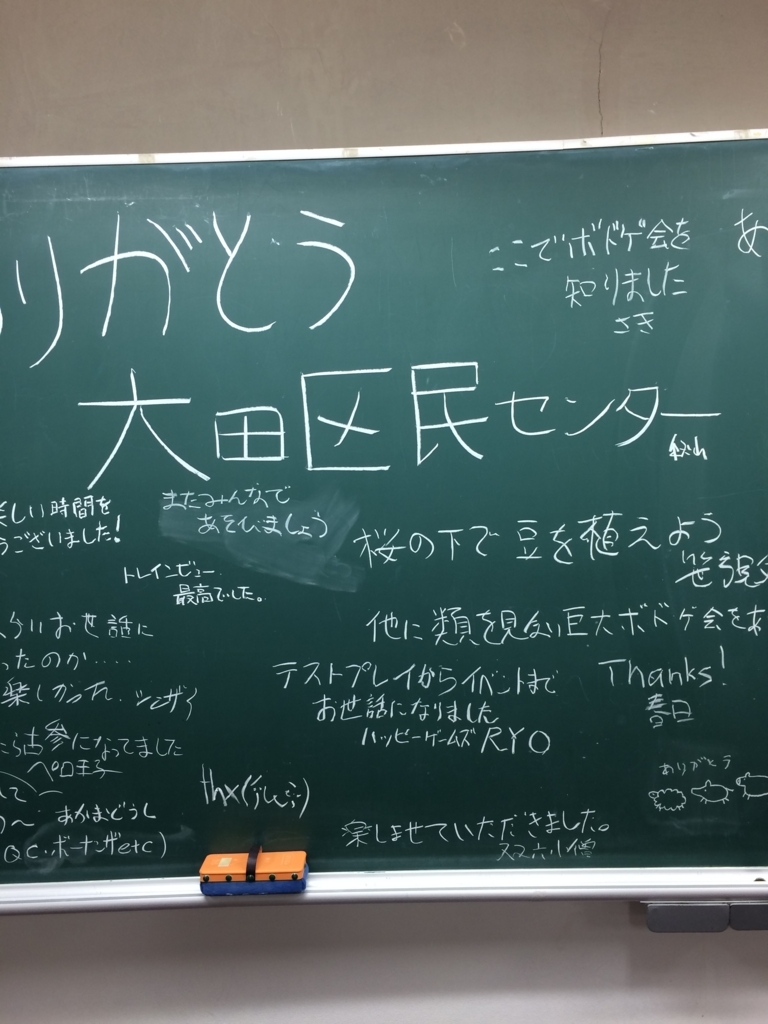 りがとう
大田区民センター
ここでボドゲ会を
知りました
さき
あ
しい時間を
うございました!
またみんなで
あそびましょう
トレインビュー
最高でした。
桜の下で豆を植えよう
他に類を見ない巨大ボドゲ会をあ
お世話に
ったのか....
楽しかった。
テストプレイからイベントまで
お世話になりました
ハッピーゲームズRYO
Thanks!
春日
ら古参になってました
ペロ王子
ありがとう
して
あかまどうし
QC..ボーナンザetc)
thx(
楽しませていただきました。
双六小僧